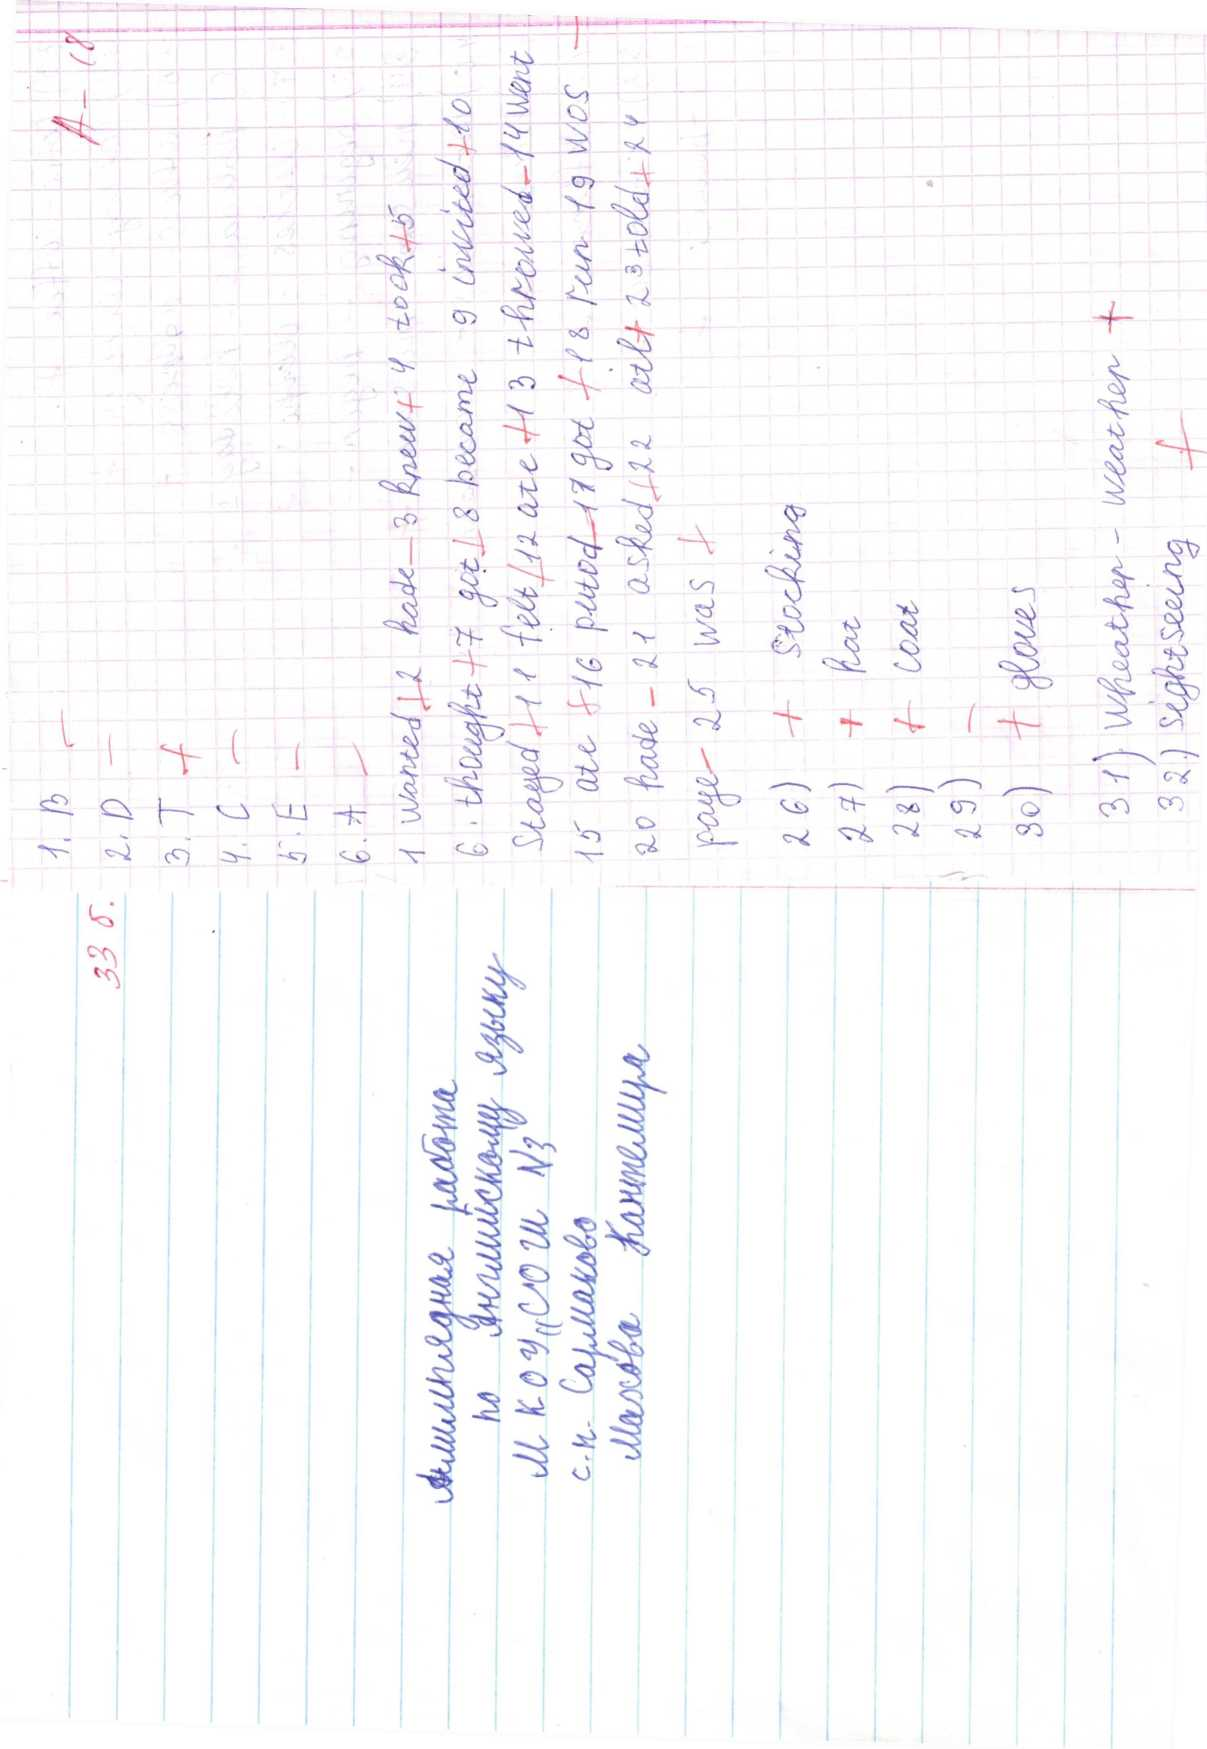 33 б.
Олимпиадная работа
по Английскому языку
МКОУ „СОШ N3
с.п. Сармаково
Махова Кантемира
А - 18
1. B -
2. D -
3. T +
4. C -
5. E -
6. A -
1 wanted + 2 hade - 3 knew + 4 took + 5
6. thought + 7 got + 8 became 9 invited + 10
Stayed + 11 felt + 12 ate + 13 throwed - 14 went
15 ate + 16 putod - 17 got + 18 run 19 wos -
20 hade - 21 asked + 22 atl + 23 told + 24
paye - 25 was +
26) + Stocking
27) + hat
28) + coat
29) -
30) + gloves
31) Wheather - weather +
32) Sightseeing +